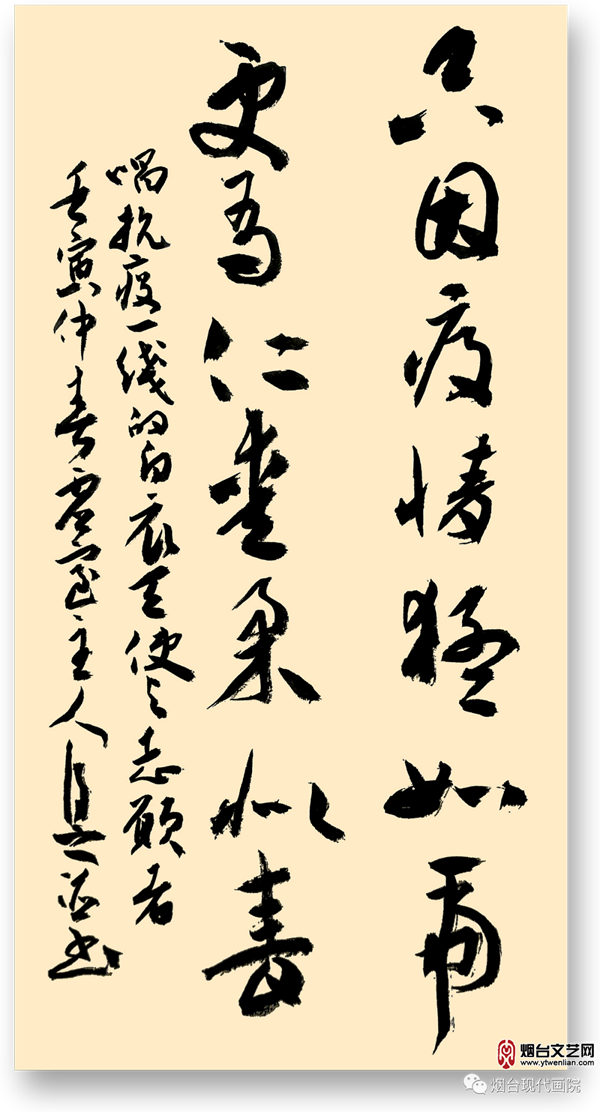 只因疫情猛如虎
更为仁爱柔似春
唱抗疫一线的白衣天使与志愿者
壬寅仲春君室主人 并书
烟台文艺网
www.ytwenlian.com
烟台现代画院